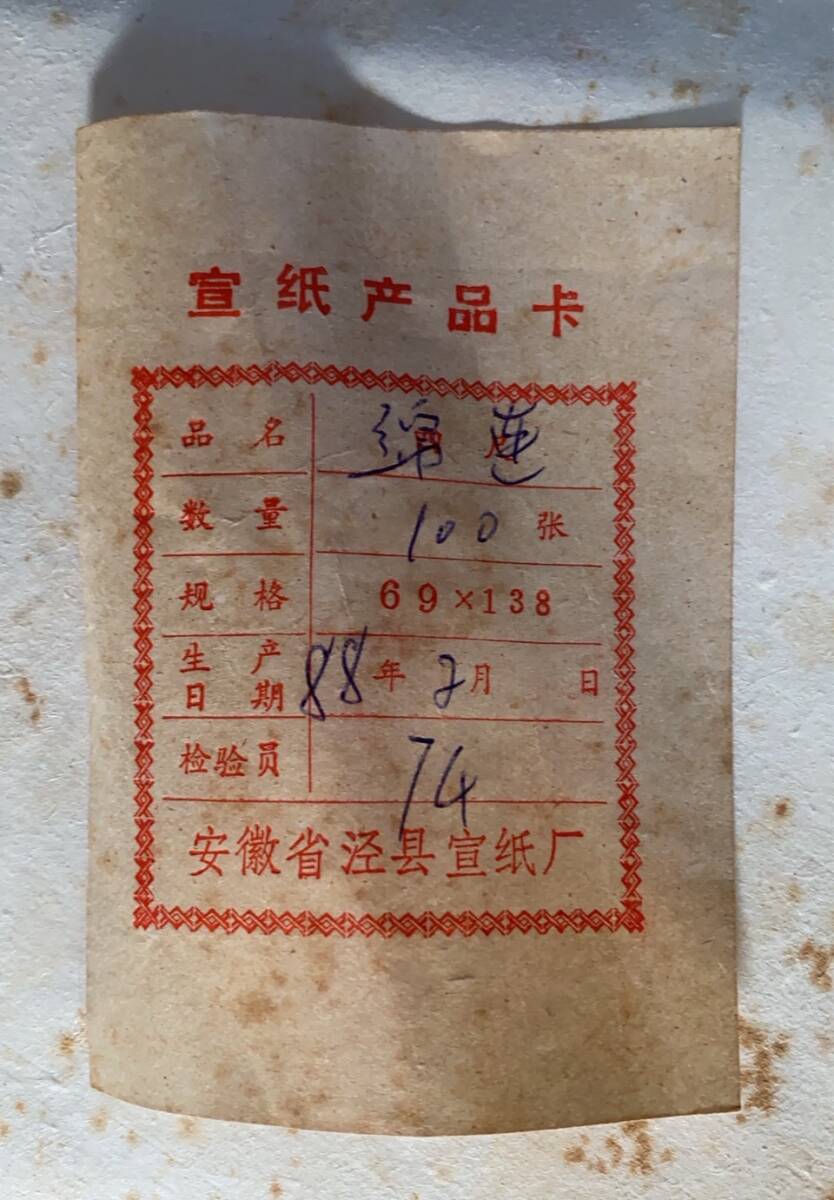 宣纸产品卡
品名 绵连
数量 100 张
规格 69×138
生产日期 88年2月 日
检验员 74
安徽省泾县宣纸厂